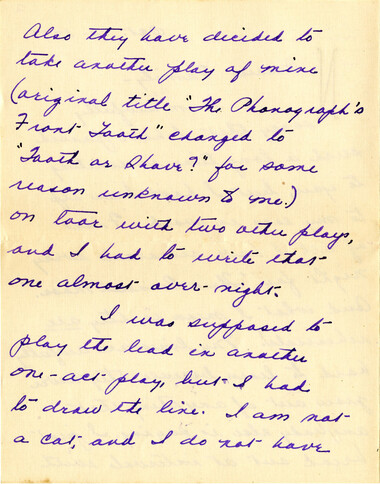 Also they have decided to
take another play of mine
(original title "The Phonograph's
Front Tooth" changed to
"Tooth or Shave?" for some
reason unknown to me.)
on tour with two other plays,
and I had to write that
one almost over-night.
I was supposed to
play the lead in another
one-act play, but I had
to draw the line. I am not
a cat, and I do not have